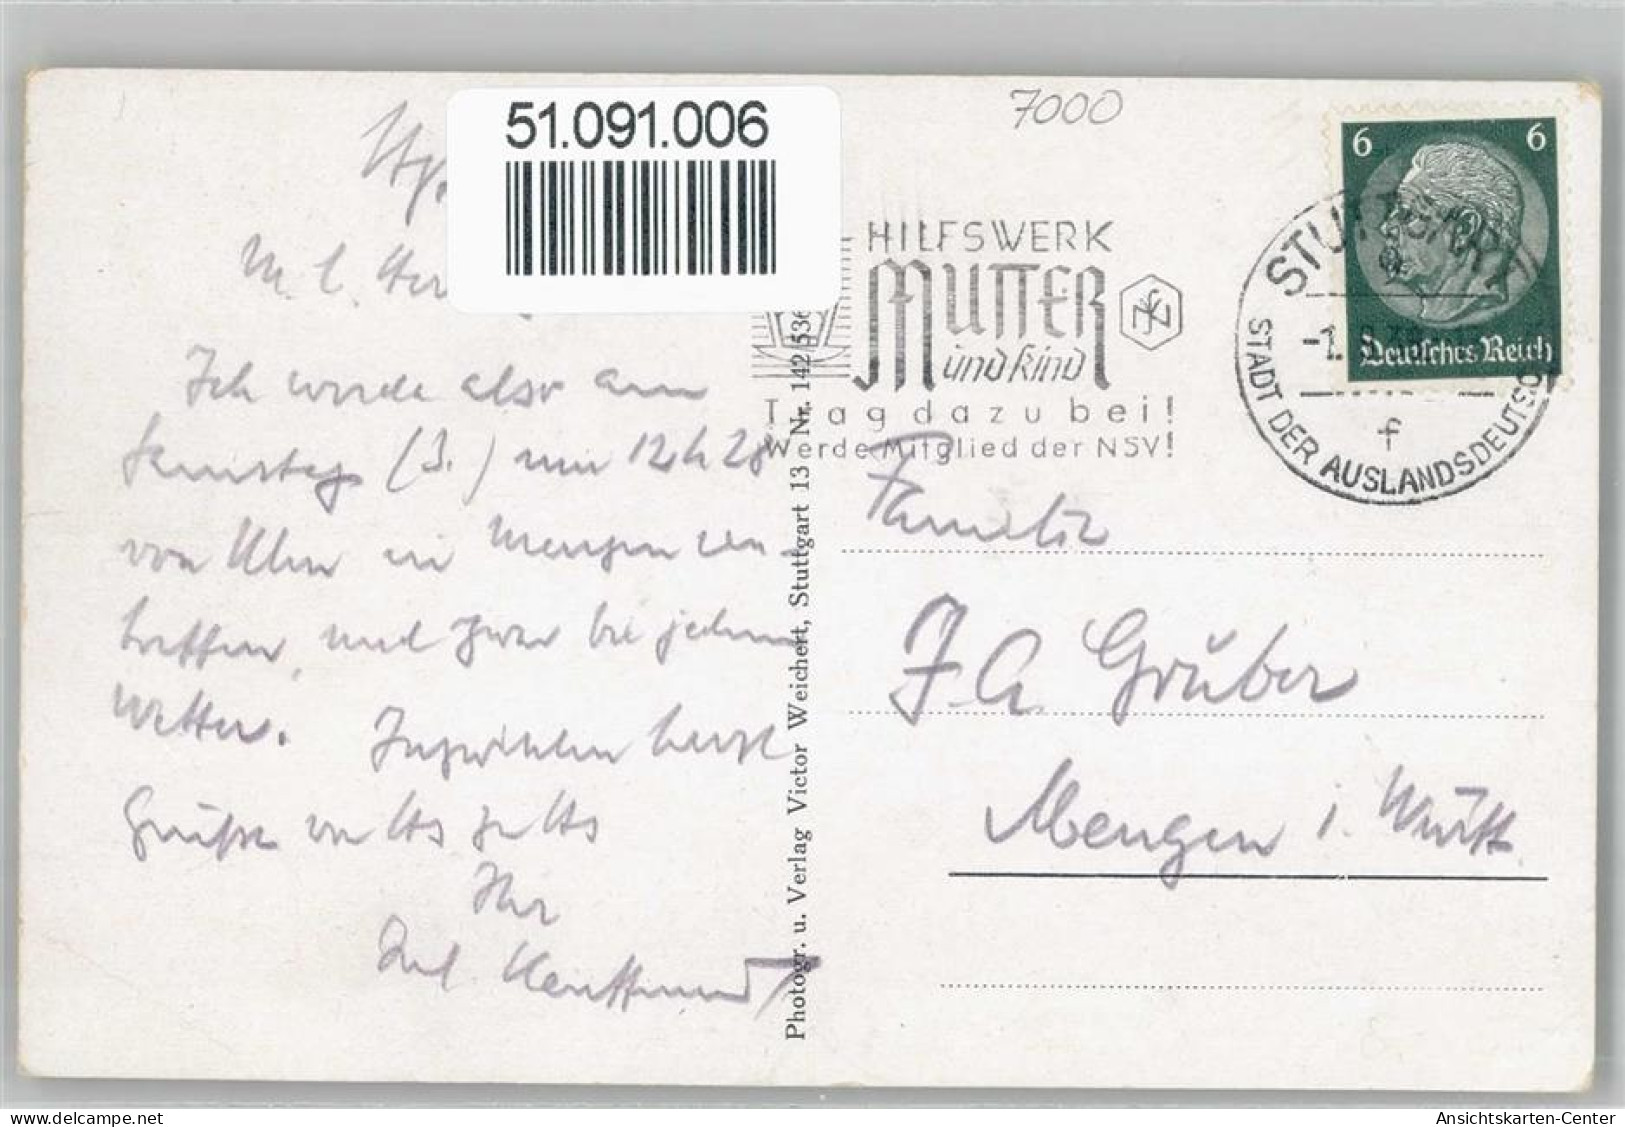 51.091.006
7000
6 6
Deutsches Reich
STUTTGART
-1.
f
STADT DER AUSLANDSDEUTSC
HILFSWERK
MUTTER
und Kind
Tragdazubei!
Werde Mitglied der NSV!
Ich werde also am
Samstag (3.) um 12 h 28
von Ulm in Mengen ein-
treffen, und zwar bei jedem
Wetter. Inzwischen herzl
Grüße von Hs zu Hs
Ihr
Photogr. u. Verlag Victor Weichert, Stuttgart 13 Nr. 142 536
Familie
J. A. Gruber
Mengen i. Württ.
delcampe.net
Ansichtskarten-Center